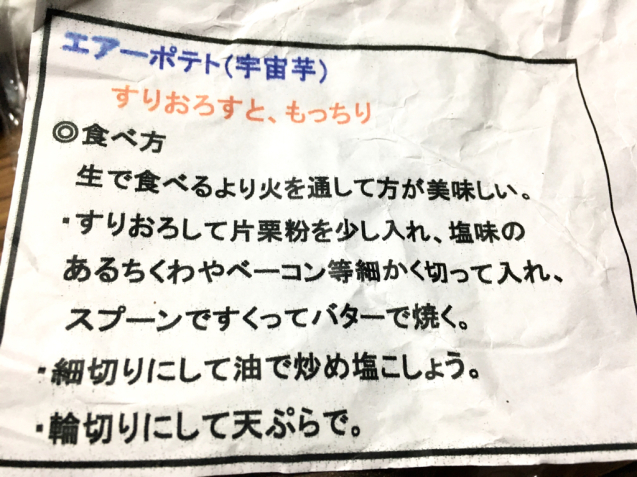 エアーポテト(宇宙芋)
すりおろすと、もっちり
◎食べ方
生で食べるより火を通して方が美味しい。
・すりおろして片栗粉を少し入れ、塩味の
あるちくわやベーコン等細かく切って入れ、
スプーンですくってバターで焼く。
・細切りにして油で炒め塩こしょう。
・輪切りにして天ぷらで。